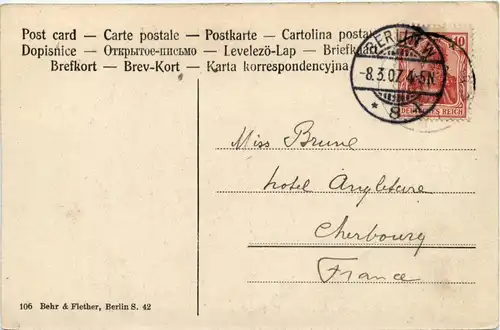 Post card — Carte postale — Postkarte — Cartolina postal
Dopisnice — Открытое-письмо — Levelező-Lap — Briefkaa
Brefkort — Brev-Kort — Karta korrespondencyjna
BERLIN W
-8.3.07. 4-5N
* 8
10
DEUTSCHES REICH
Miss Brune
hotel Angletaire
Cherbourg
France
106 Behr & Flether, Berlin S. 42